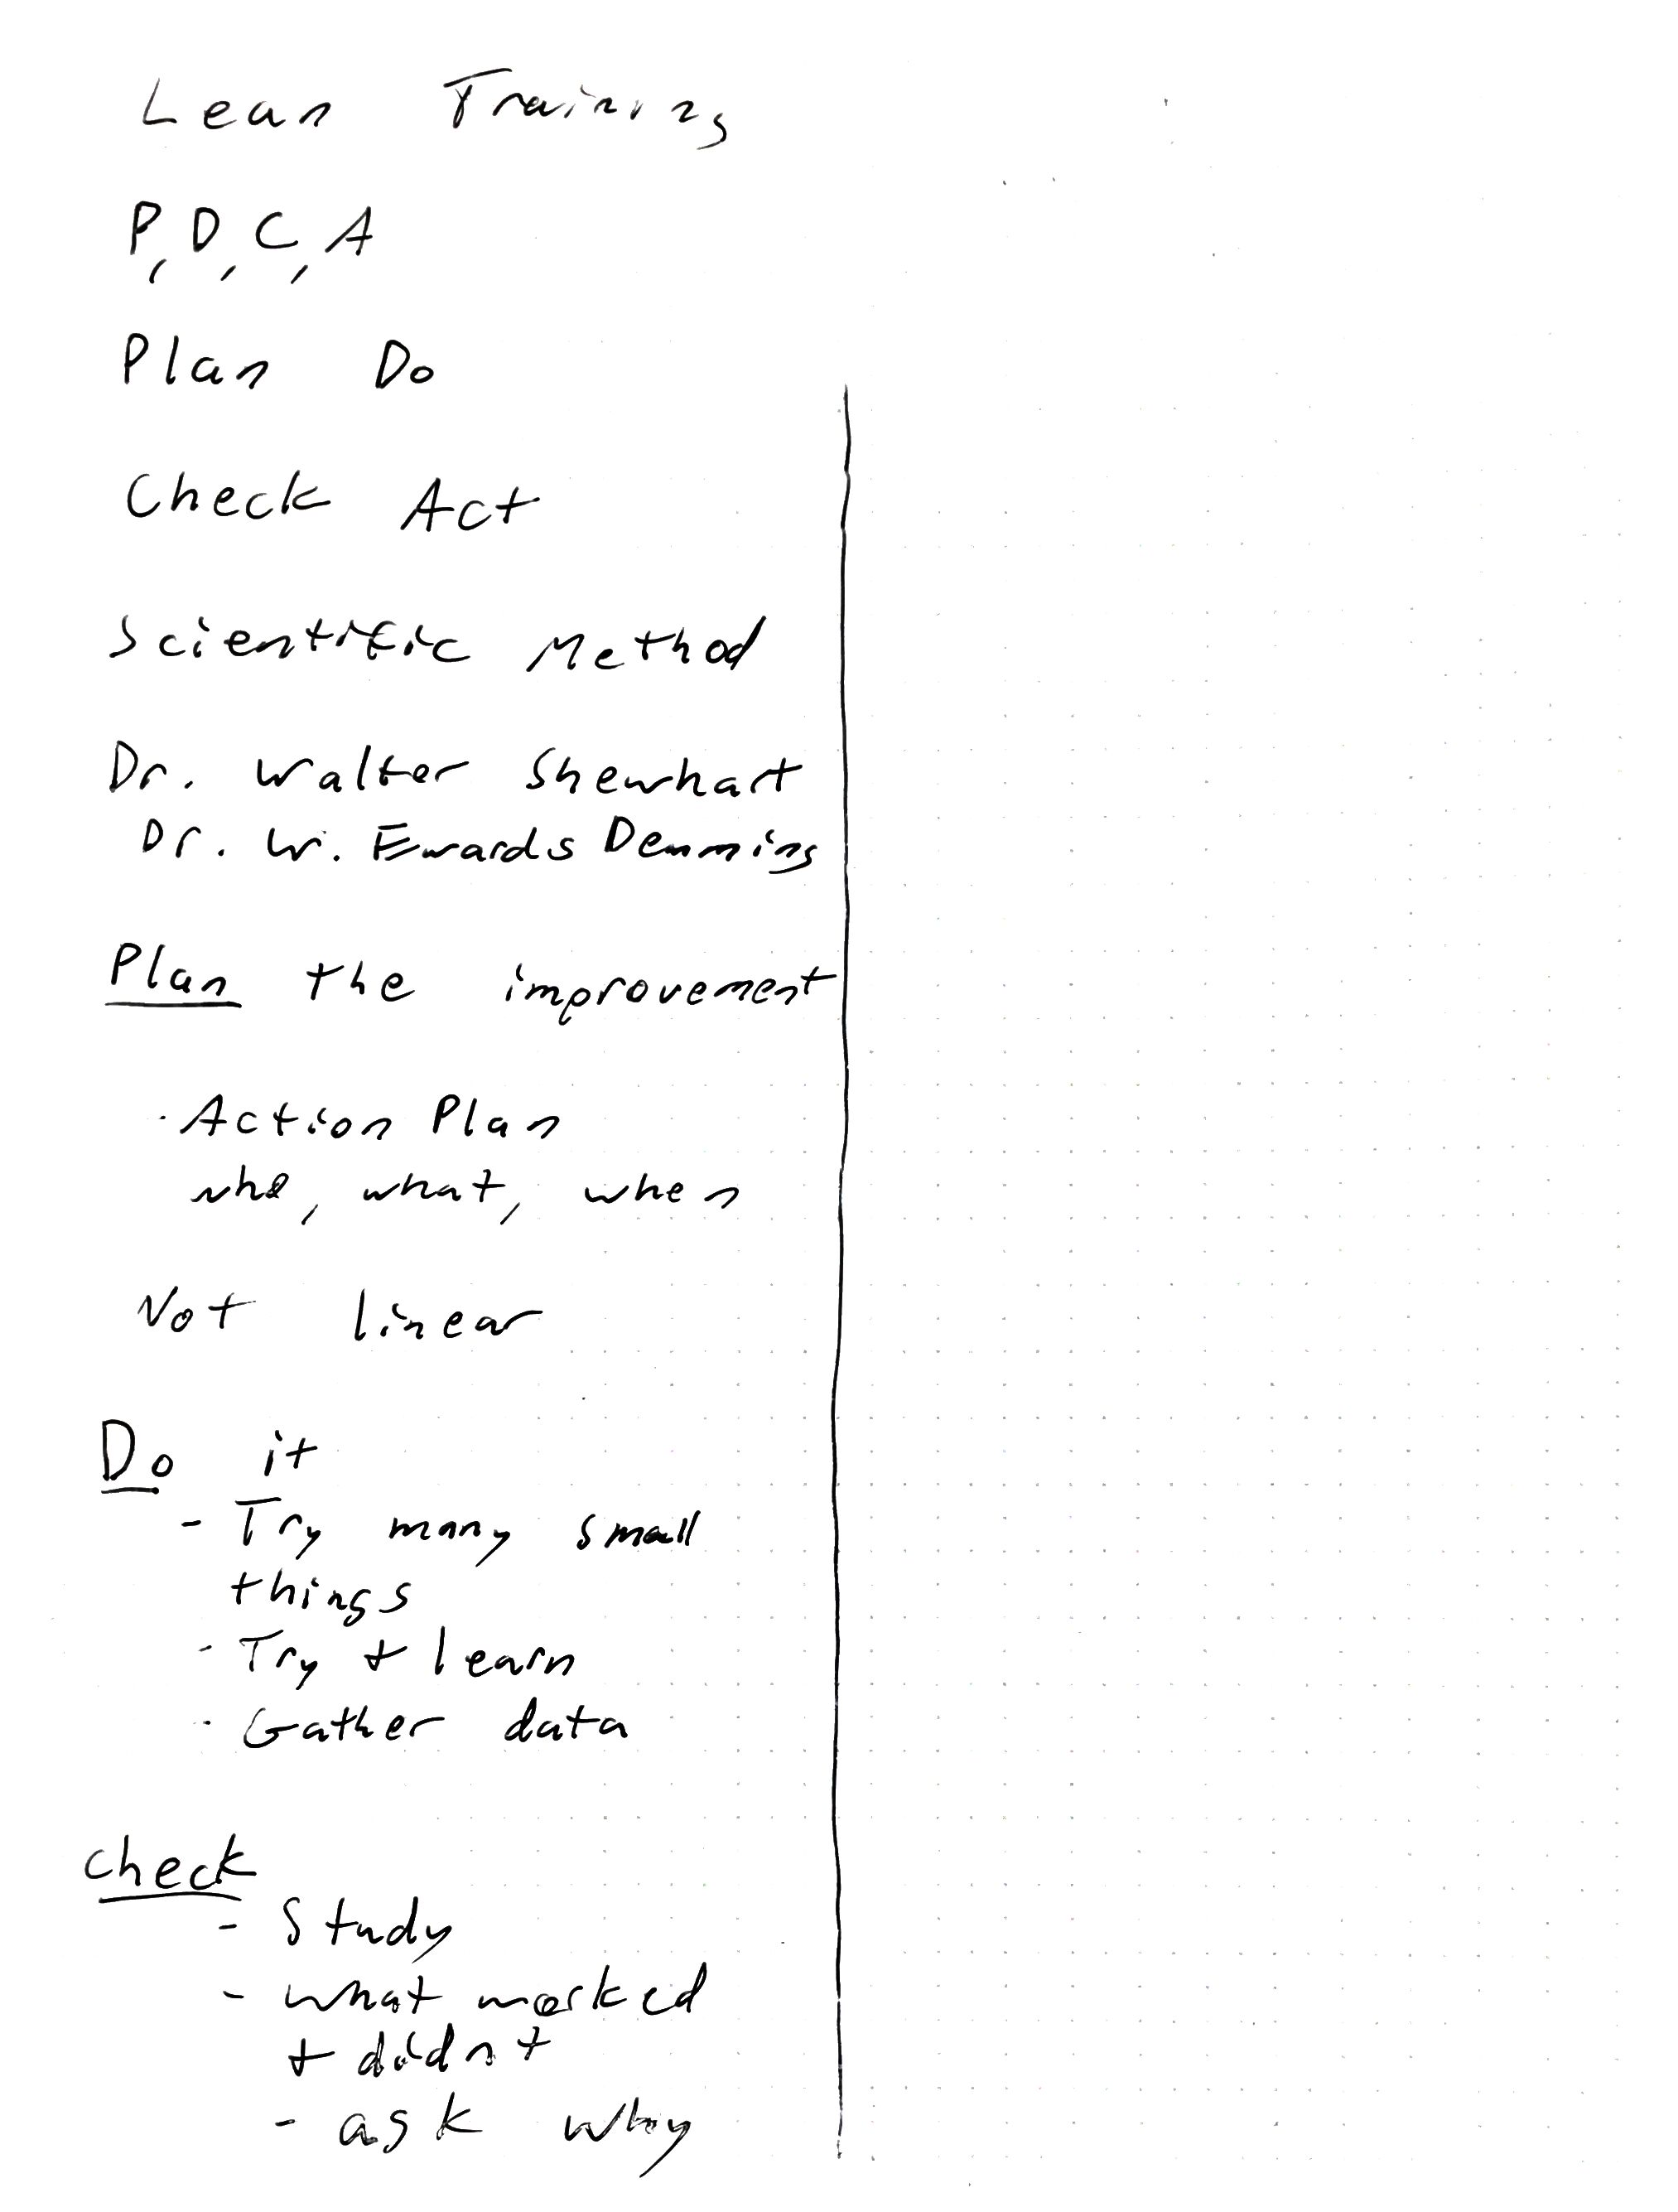 Lean Training
P, D, C, A
Plan Do
Check Act
Scientific Method
Dr. Walter Shewhart
Dr. W. Ewards Demming
Plan the improvement
· Action Plan
who, what, when
Not linear
Do it
- Try many small
things
- Try + learn
- Gather data
Check
- Study
- what worked
+ didnt
- ask why